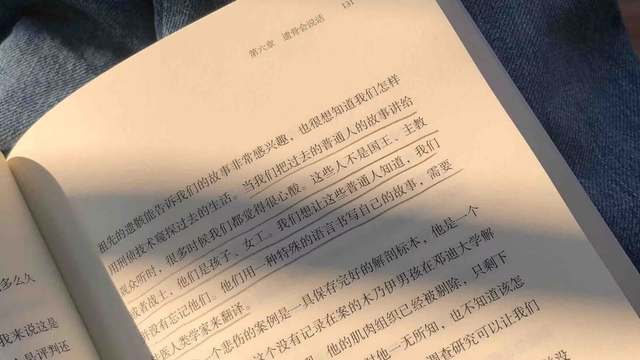 131
第六章 遗骨会说话
祖先的遗骸能告诉我们的故事非常感兴趣，也很想知道我们怎样
用刑侦技术窥探过去的生活。当我们把过去的普通人的故事讲给
观众听时，很多时候我们都觉得很心酸。这些人不是国王、主教
或者战士，他们是孩子、女工。我们想让这些普通人知道，我们
并没有忘记他们。他们用一种特殊的语言书写自己的故事，需要
法医人类学家来翻译。
一个悲伤的案例是一具保存完好的解剖标本，他是一个
这个没有记录在案的木乃伊男孩在邓迪大学解
他的肌肉组织已经被剔除，只剩下
对他一无所知，也不知道该怎
调查研究可以让我们
没
多么久
我来说这是
是评判还